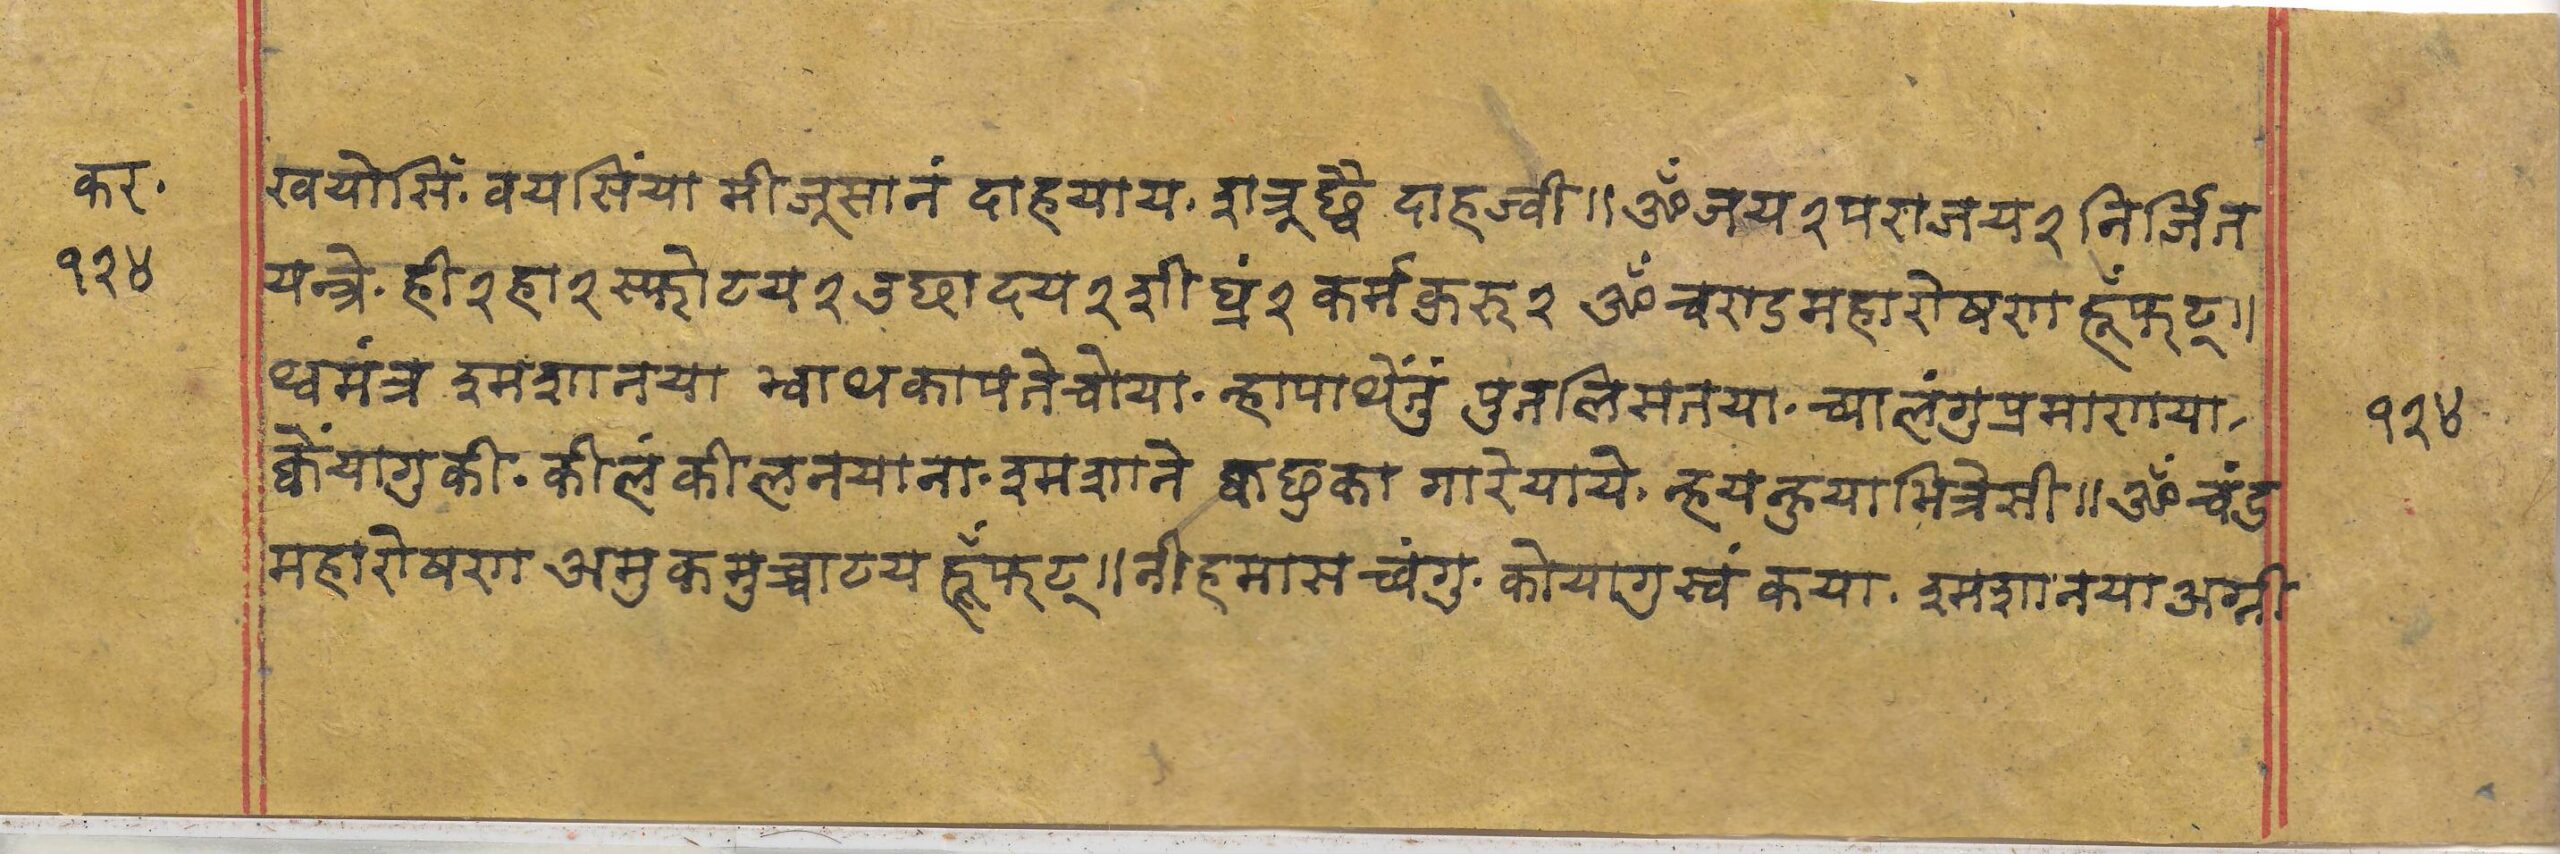 कर.
१२४
खयोसिं. वयसिंया मीजूसानं दाहयाय. शत्रूछ्वै दाहज्वी॥ ॐ जय२ पराजय२ निर्जित
यन्त्रे. ही२ हा२ स्फोटय२ उछादय२ शीघ्रं२ कर्म क्रुरु२ ॐ चण्ड महारोषण हूँ फट्॥
थ्वमंत्र श्मशानया भ्वाथकापतेचोया. न्हापाथेंतुं पुतलिसतया. च्यालंगुप्रमाणया
क्वेंयागुकी. कीलं कीलनयाना. श्मशाने क्वछुका गारेयाये. न्हयन्हुयाभित्रेसी॥ ॐ चंड
महारोषण अमुकमुच्चाटय हूँ फट्॥ नीहमास च्वंगु. कोयागु स्वं कया. श्मशानया अग्नी
१२४